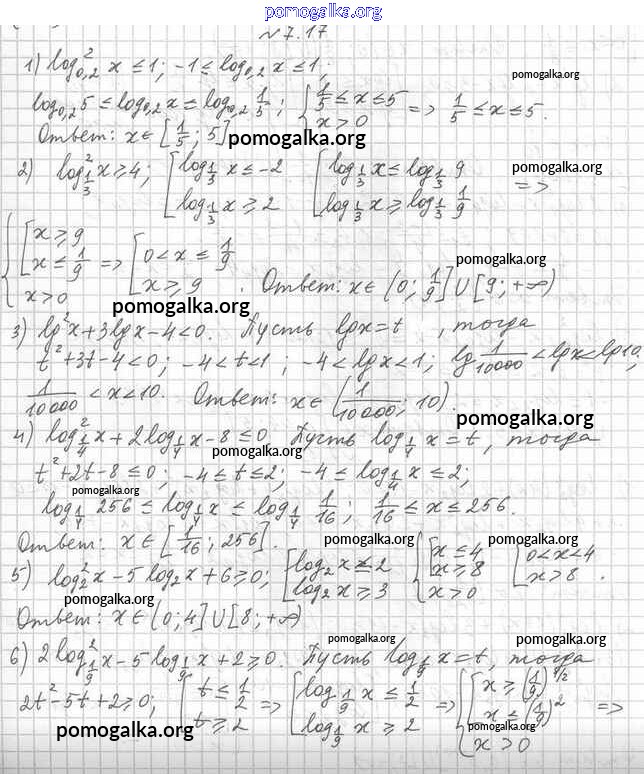 pomogalka.org
№ 7.17
1) log²₀,₂ x ≤ 1; -1 ≤ log₀,₂ x ≤ 1; pomogalka.org
log₀,₂ 5 ≤ log₀,₂ x ≤ log₀,₂ 1/5; { 1/5 ≤ x ≤ 5 x > 0 => 1/5 ≤ x ≤ 5.
Ответ: x ∈ [1/5; 5] pomogalka.org
2) log²_{1/3} x ≥ 4; [ log_{1/3} x ≤ -2 log_{1/3} x ≥ 2 [ log_{1/3} x ≤ log_{1/3} 9 log_{1/3} x ≥ log_{1/3} 1/9 => pomogalka.org
{ [ x ≥ 9 x ≤ 1/9 x > 0 => [ 0 < x ≤ 1/9 x ≥ 9. Ответ: x ∈ (0; 1/9] ∪ [9; +∞) pomogalka.org
pomogalka.org
3) lg²x + 3lgx - 4 < 0. Пусть lgx = t, тогда
t² + 3t - 4 < 0; -4 < t < 1; -4 < lgx < 1; lg 1/10000 < lgx < lg10,
1/10000 < x < 10. Ответ: x ∈ (1/10000; 10).
pomogalka.org
4) log²_{1/4} x + 2log_{1/4} x - 8 ≤ 0. Пусть log_{1/4} x = t, тогда
pomogalka.org
t² + 2t - 8 ≤ 0; -4 ≤ t ≤ 2; -4 ≤ log_{1/4} x ≤ 2;
pomogalka.org
log_{1/4} 256 ≤ log_{1/4} x ≤ log_{1/4} 1/16; 1/16 ≤ x ≤ 256.
Ответ: x ∈ [1/16; 256]. pomogalka.org pomogalka.org
5) log²₂ x - 5 log₂ x + 6 ≥ 0; [ log₂ x ≤ 2 log₂ x ≥ 3 { [ x ≤ 4 x ≥ 8 x > 0 [ 0 < x < 4 x > 8.
pomogalka.org
Ответ: x ∈ (0; 4] ∪ [8; +∞)
pomogalka.org pomogalka.org
6) 2log²_{1/9} x - 5log_{1/9} x + 2 ≥ 0. Пусть log_{1/9} x = t, тогда
2t² - 5t + 2 ≥ 0; [ t ≤ 1/2 t ≥ 2 => [ log_{1/9} x ≤ 1/2 log_{1/9} x ≥ 2 => { [ x ≥ (1/9)^{1/2} x ≤ (1/9)² x > 0 =>
pomogalka.org pomogalka.org